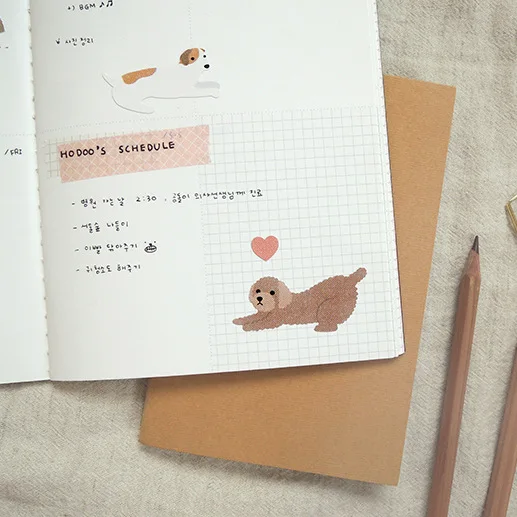 +) BGM ♪♬
사진 정리
/FRI
HODOO'S SCHEDULE
- 병원 가는날 2:30 , 곰돌이 의사선생님께 진료
- 서울숲 나들이
- 이빨 닦아주기
- 귀청소도 해주기